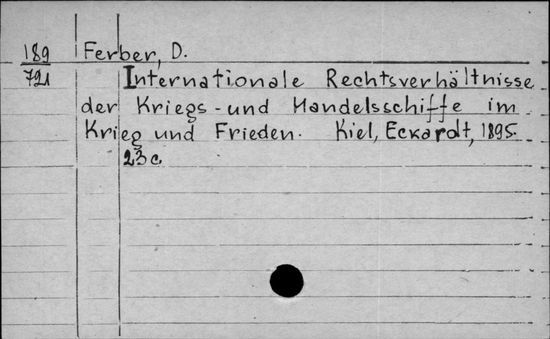 189 Ferber, D.
721 Internationale Rechtsverhältnisse
der Kriegs-und Handelsschiffe im
Krieg und Frieden. Kiel, Eckardt, 1895.
23 c.